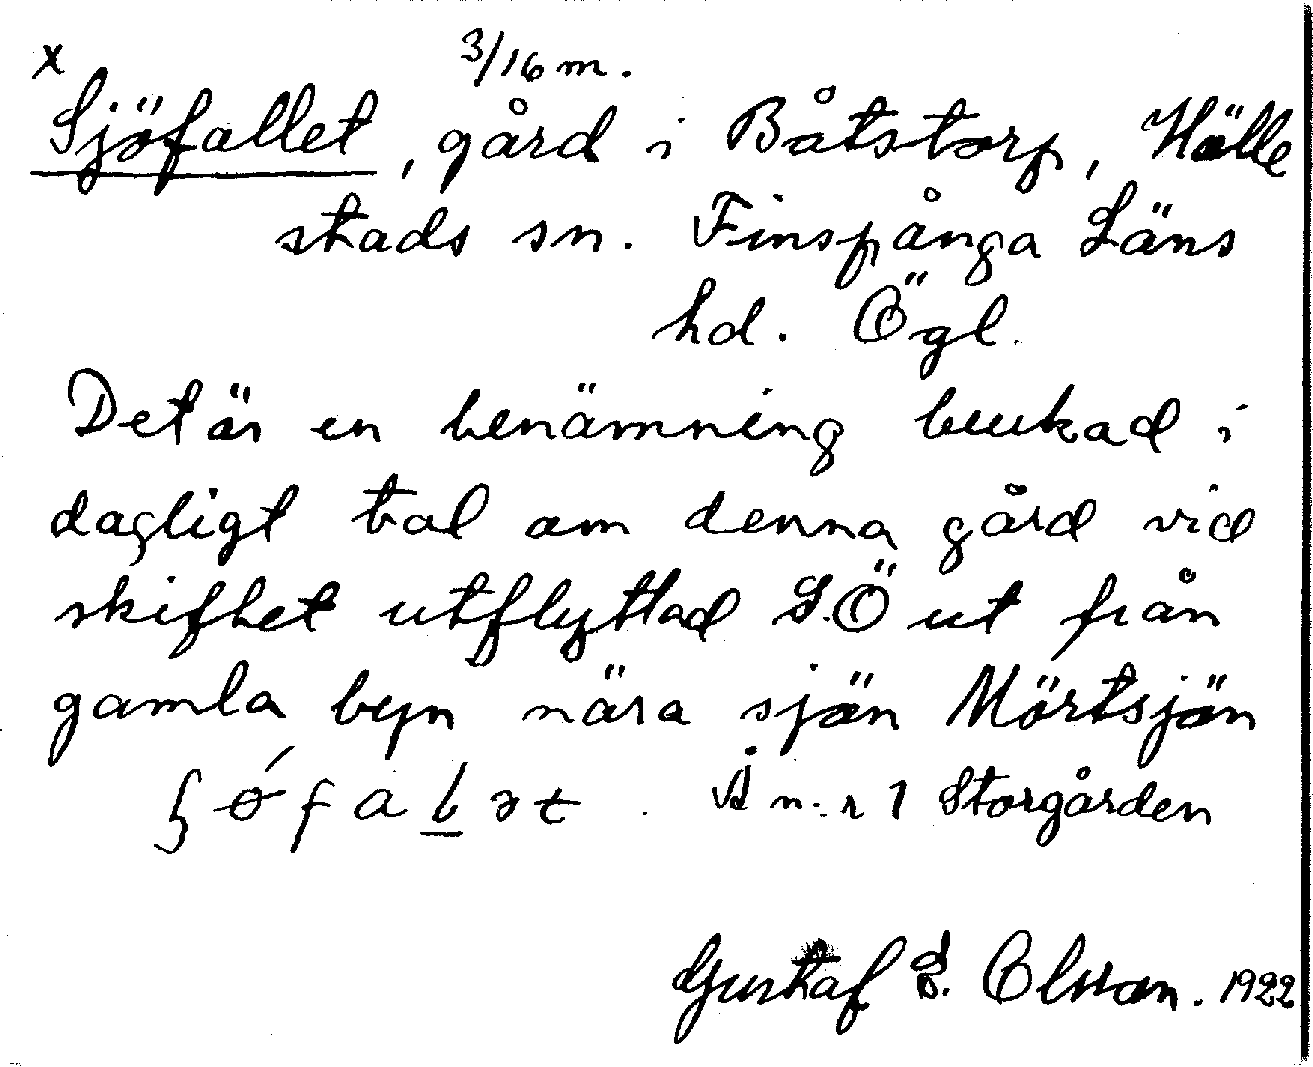 x 3/16 m.
Sjöfallet, gård i Båtstorp, Hälle
stads sn. Finspånga Läns
hd. Ögl.
Det är en benämning brukad i
dagligt tal om denna gård vid
skiftet utflyttad S.Ö ut från
gamla byn nära sjön Mörtsjön
n:r 1 Storgården
Gustaf S. Olsson. 1922